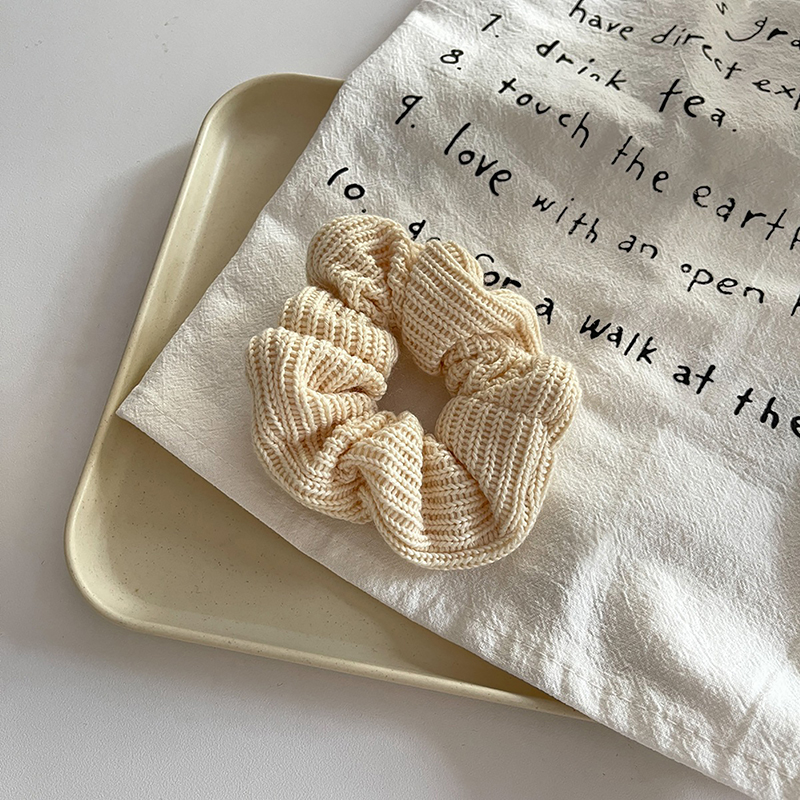 have direct
7. drink tea.
8. touch the earth
9. love with an open
10. for a walk at the